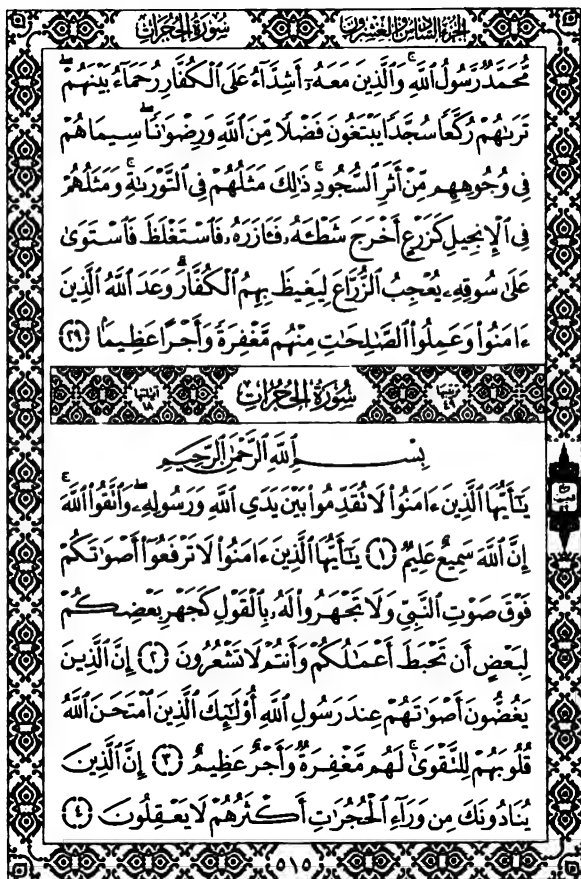 الجزء السادس والعشرون
سورة الحجرات
مُّحَمَّدٌ رَّسُولُ ٱللَّهِ ۚ وَٱلَّذِينَ مَعَهُۥٓ أَشِدَّآءُ عَلَى ٱلْكُفَّارِ رُحَمَآءُ بَيْنَهُمْ ۖ
تَرَىٰهُمْ رُكَّعًا سُجَّدًا يَبْتَغُونَ فَضْلًا مِّنَ ٱللَّهِ وَرِضْوَٰنًا ۖ سِيمَاهُمْ
فِى وُجُوهِهِم مِّنْ أَثَرِ ٱلسُّجُودِ ۚ ذَٰلِكَ مَثَلُهُمْ فِى ٱلتَّوْرَىٰةِ ۚ وَمَثَلُهُمْ
فِى ٱلْإِنجِيلِ كَزَرْعٍ أَخْرَجَ شَطْـَٔهُۥ فَـَٔازَرَهُۥ فَٱسْتَغْلَظَ فَٱسْتَوَىٰ
عَلَىٰ سُوقِهِۦ يُعْجِبُ ٱلزُّرَّاعَ لِيَغِيظَ بِهِمُ ٱلْكُفَّارَ ۗ وَعَدَ ٱللَّهُ ٱلَّذِينَ
ءَامَنُوا۟ وَعَمِلُوا۟ ٱلصَّـٰلِحَـٰتِ مِنْهُم مَّغْفِرَةً وَأَجْرًا عَظِيمًۢا ٢٩
ترتيبها ٤٩ سورة الحجرات آياتها ١٨
بِسْمِ ٱللَّهِ ٱلرَّحْمَـٰنِ ٱلرَّحِيمِ
يَـٰٓأَيُّهَا ٱلَّذِينَ ءَامَنُوا۟ لَا تُقَدِّمُوا۟ بَيْنَ يَدَىِ ٱللَّهِ وَرَسُولِهِۦ ۖ وَٱتَّقُوا۟ ٱللَّهَ ۚ
إِنَّ ٱللَّهَ سَمِيعٌ عَلِيمٌ ١ يَـٰٓأَيُّهَا ٱلَّذِينَ ءَامَنُوا۟ لَا تَرْفَعُوٓا۟ أَصْوَٰتَكُمْ
فَوْقَ صَوْتِ ٱلنَّبِىِّ وَلَا تَجْهَرُوا۟ لَهُۥ بِٱلْقَوْلِ كَجَهْرِ بَعْضِكُمْ
لِبَعْضٍ أَن تَحْبَطَ أَعْمَـٰلُكُمْ وَأَنتُمْ لَا تَشْعُرُونَ ٢ إِنَّ ٱلَّذِينَ
يَغُضُّونَ أَصْوَٰتَهُمْ عِندَ رَسُولِ ٱللَّهِ أُو۟لَـٰٓئِكَ ٱلَّذِينَ ٱمْتَحَنَ ٱللَّهُ
قُلُوبَهُمْ لِلتَّقْوَىٰ ۚ لَهُم مَّغْفِرَةٌ وَأَجْرٌ عَظِيمٌ ٣ إِنَّ ٱلَّذِينَ
يُنَادُونَكَ مِن وَرَآءِ ٱلْحُجُرَٰتِ أَكْثَرُهُمْ لَا يَعْقِلُونَ ٤
٥١٥